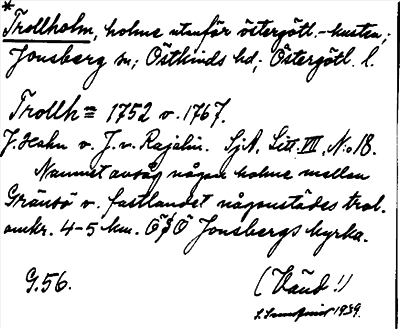 *
Trollholm, holme utanför östergötl.-kusten;
Jonsberg sn; Östkinds hd; Östergötl. l.
Trollhm 1752 o. 1767.
J. Hahn o. J. v. Rajalin. SjA, Litt. VII, N:o 18.
Namnet avsåg någon holme mellan
Gränsö o. fastlandet någonstädes trol.
omkr. 4-5 km. ÖSÖ Jonsbergs kyrka.
G.56. (Vänd!)
1939.